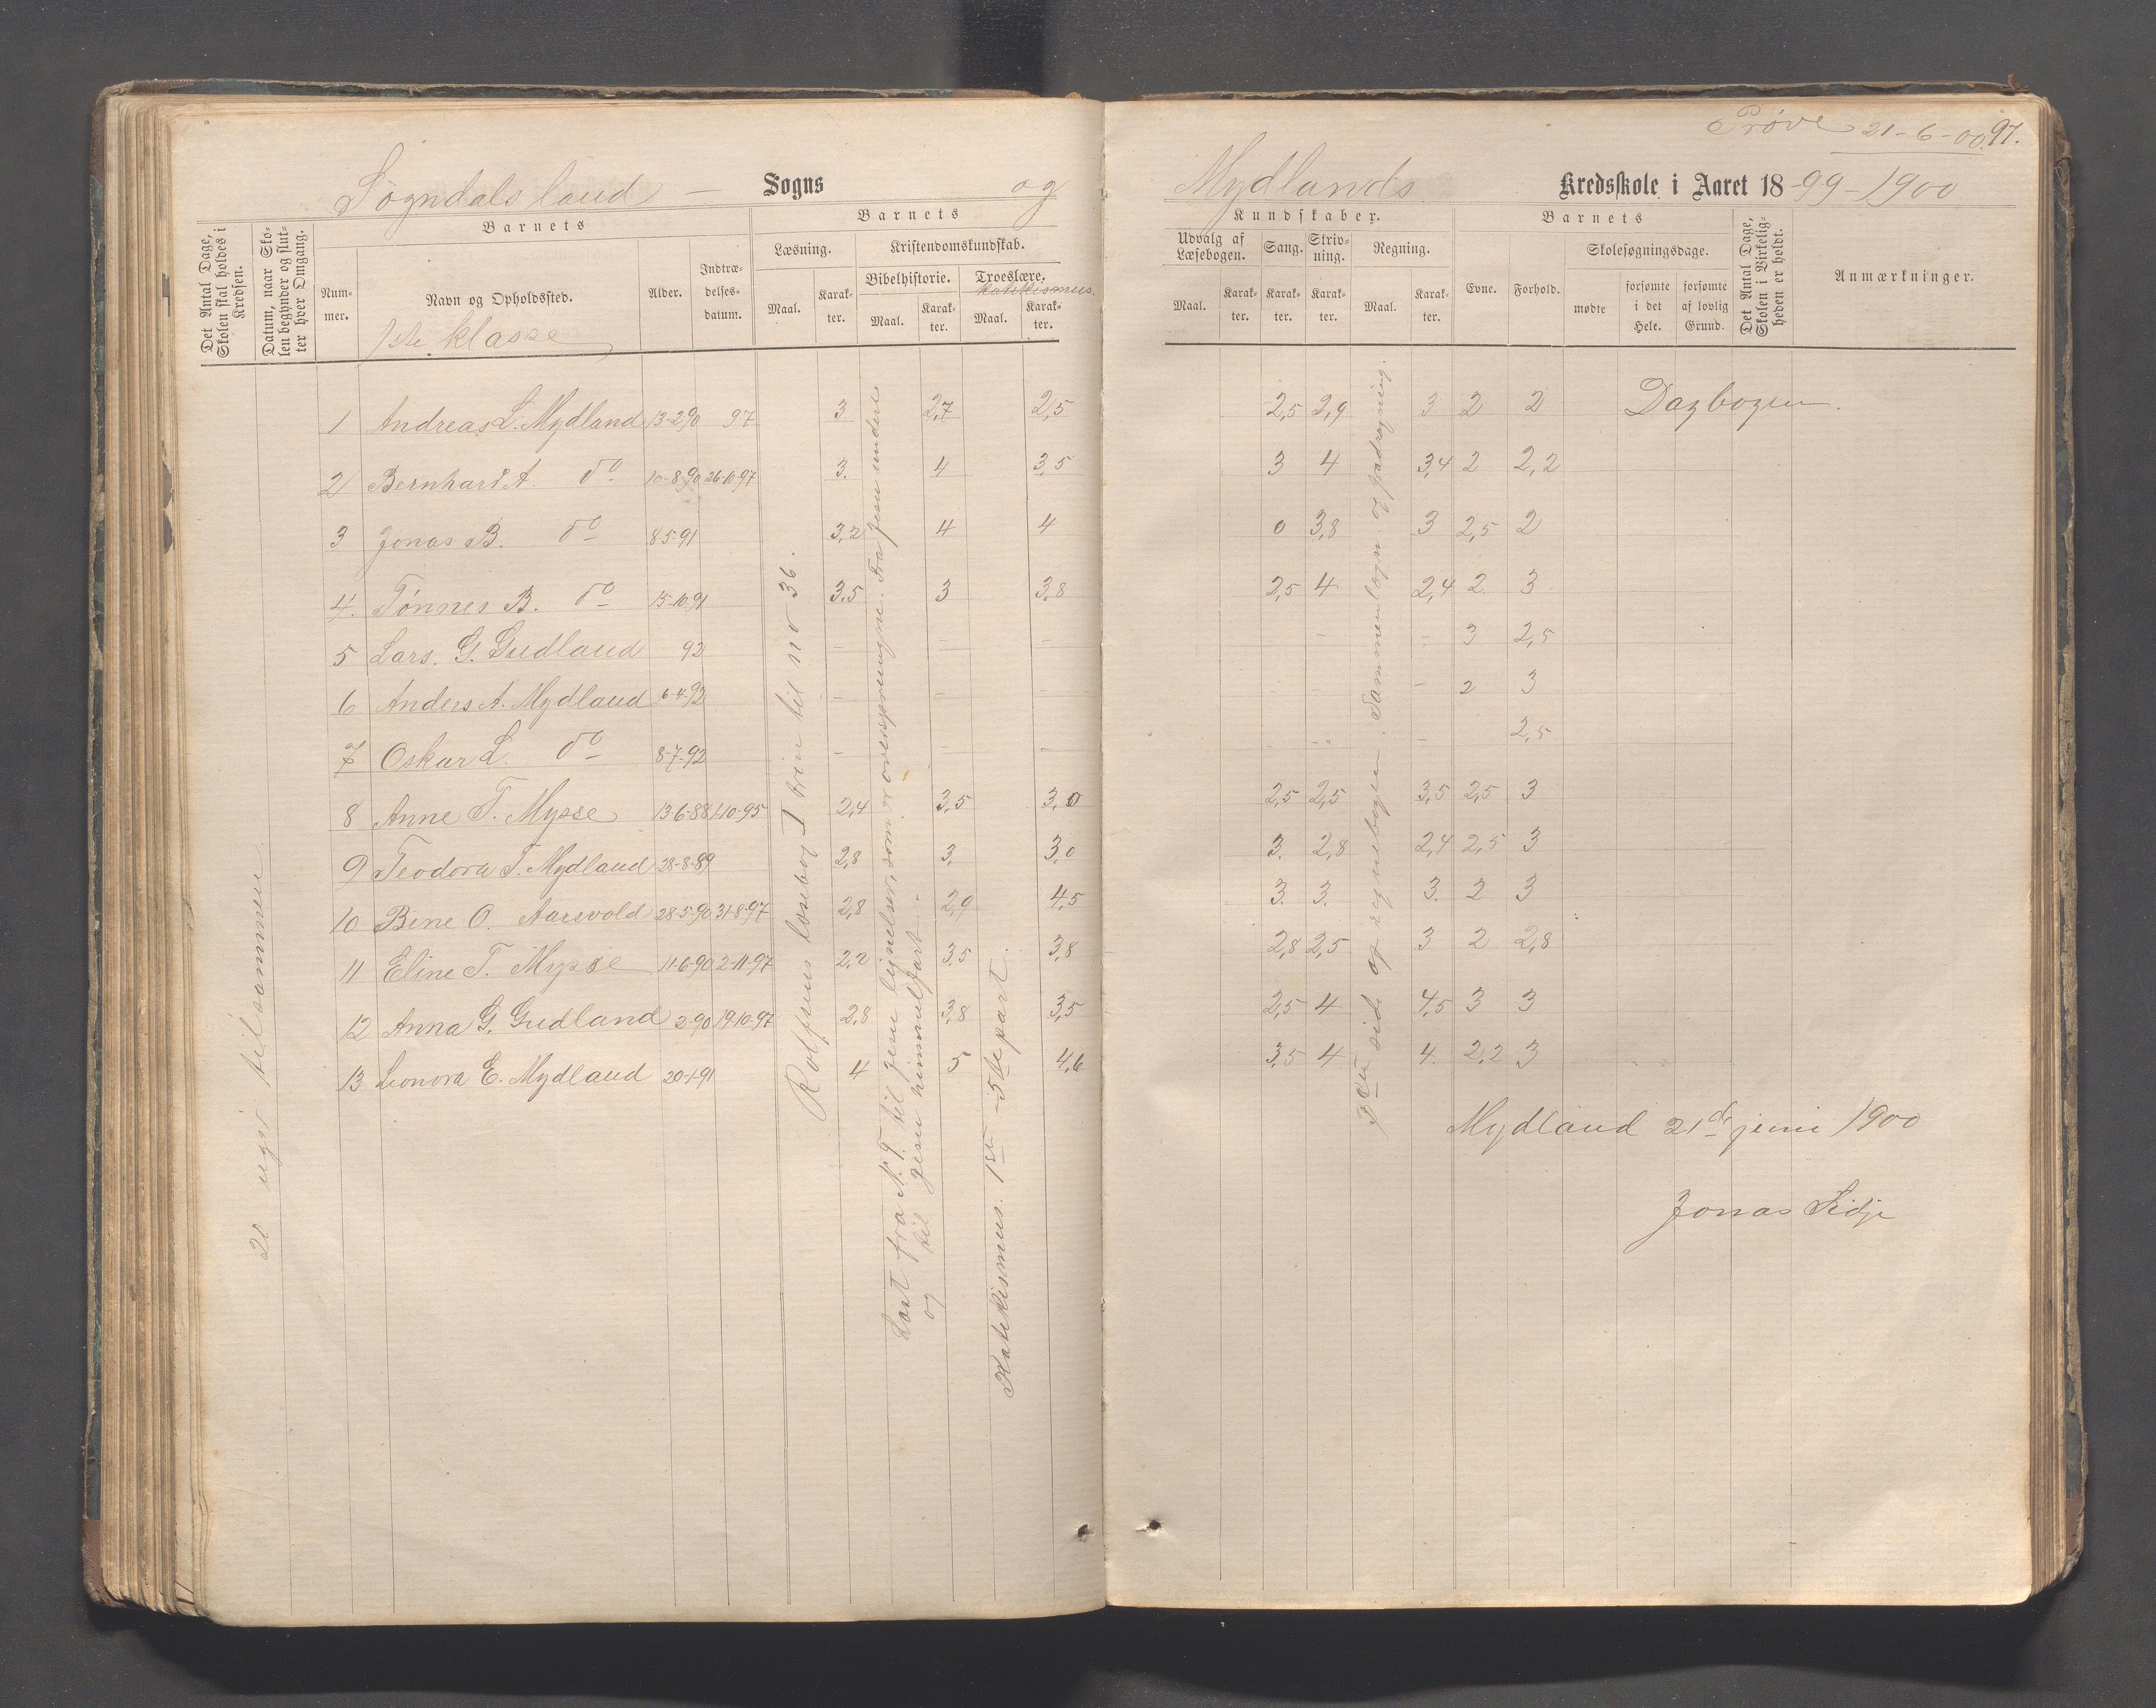 Prøve 21-6-00. 97.
Sogndals land — Sogns og
Mydlands Kredsskole i Aaret 18-99-1900
Det Antal Dage, Skolen skal holdes i Kredsen.
Datum, naar Skolen begynder og slutter hver Omgang.
Barnets
Nummer.
Navn og Opholdssted.
1ste klasse
Alder.
Indtrædelsesdatum.
Barnets
Læsning.
Maal.
Karakter.
Kristendomskundskab.
Bibelhistorie.
Maal.
Karakter.
Troeslære.
Katekismus.
Maal.
Karakter.
Kundskaber.
Udvalg af Læsebogen.
Maal.
Karakter.
Sang.
Karakter.
Skrivning.
Karakter.
Regning.
Maal.
Karakter.
Barnets
Evne.
Forhold.
Skolesøgningsdage.
mødte
forsømte i det Hele.
forsømte af lovlig Grund.
Det Antal Dage, Skolen i Virkeligheden er holdt.
Anmærkninger.
1 Andreas L. Mydland 13-2-90 97 3 2,7 2,5 2,5 2,9 3 2 2 Dagbogen.
2 Bernhard A. do 10-8-90 26-10-97 3. 4 3,5 3 4 3,4 2 2,2
3 Jonas B. do 8-5-91 3,2 4 4 0 3,8 3 2,5 2
4. Tønnes B. do 15-10-91 3,5 3 3,8 2,5 4 2,4 2 3
5 Lars. G. Gudland 92 - - - - - - 3 2,5
6 Anders A. Mydland 6-4-92 - - - - - - 2 3
7 Oskar L. do 8-7-92 - - - - - - 2,5
8 Anne T. Mysse 13-6-88 1-10-95 2,4 3,5 3,0 2,5 2,5 3,5 2,5 3
9 Teodora T. Mydland 28-8-89 2,8 3. 3,0 3. 2,8 2,4 2,5 3
10 Bine O. Aarsvold 28-5-90 31-8-97 2,8 2,9 4,5 3. 3. 3. 2 3
11 Eline T. Mysse 11-6-90 2-11-97 2,2 3,5 3,8 2,8 2,5 3 2 2,8
12 Anna G. Gudland 2-90 19-10-97 2,8 3,8 3,5 2,5 4 4,5 3 3
13 Leonora E. Mydland 20-1-91 4 5 4,6 3,5 4 4. 2,2 3
20 uger tilsammen.
Rolfsens læsebog I trin til no 36.
Læst fra N. T. til Jesu lignelser, som er oversprungne. Fra Jesu underle
og til Jesu himmelfart.
Katekismus. 1ste - 5te part.
3die side af regnebogen. Sammenlægn. og fradragning.
Mydland 21de juni 1900
Jonas Sidje